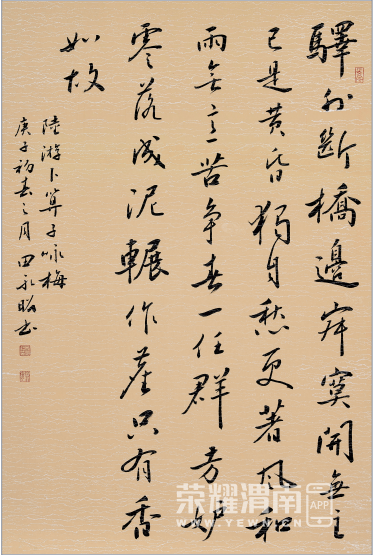 驛外斷橋邊寂寞開無主
已是黄昏獨自愁更著風和
雨無意苦争春一任群芳妒
零落成泥輾作塵只有香
如故
陸游卜算子咏梅
庚子初春之月田永昭书
荣耀渭南
APP